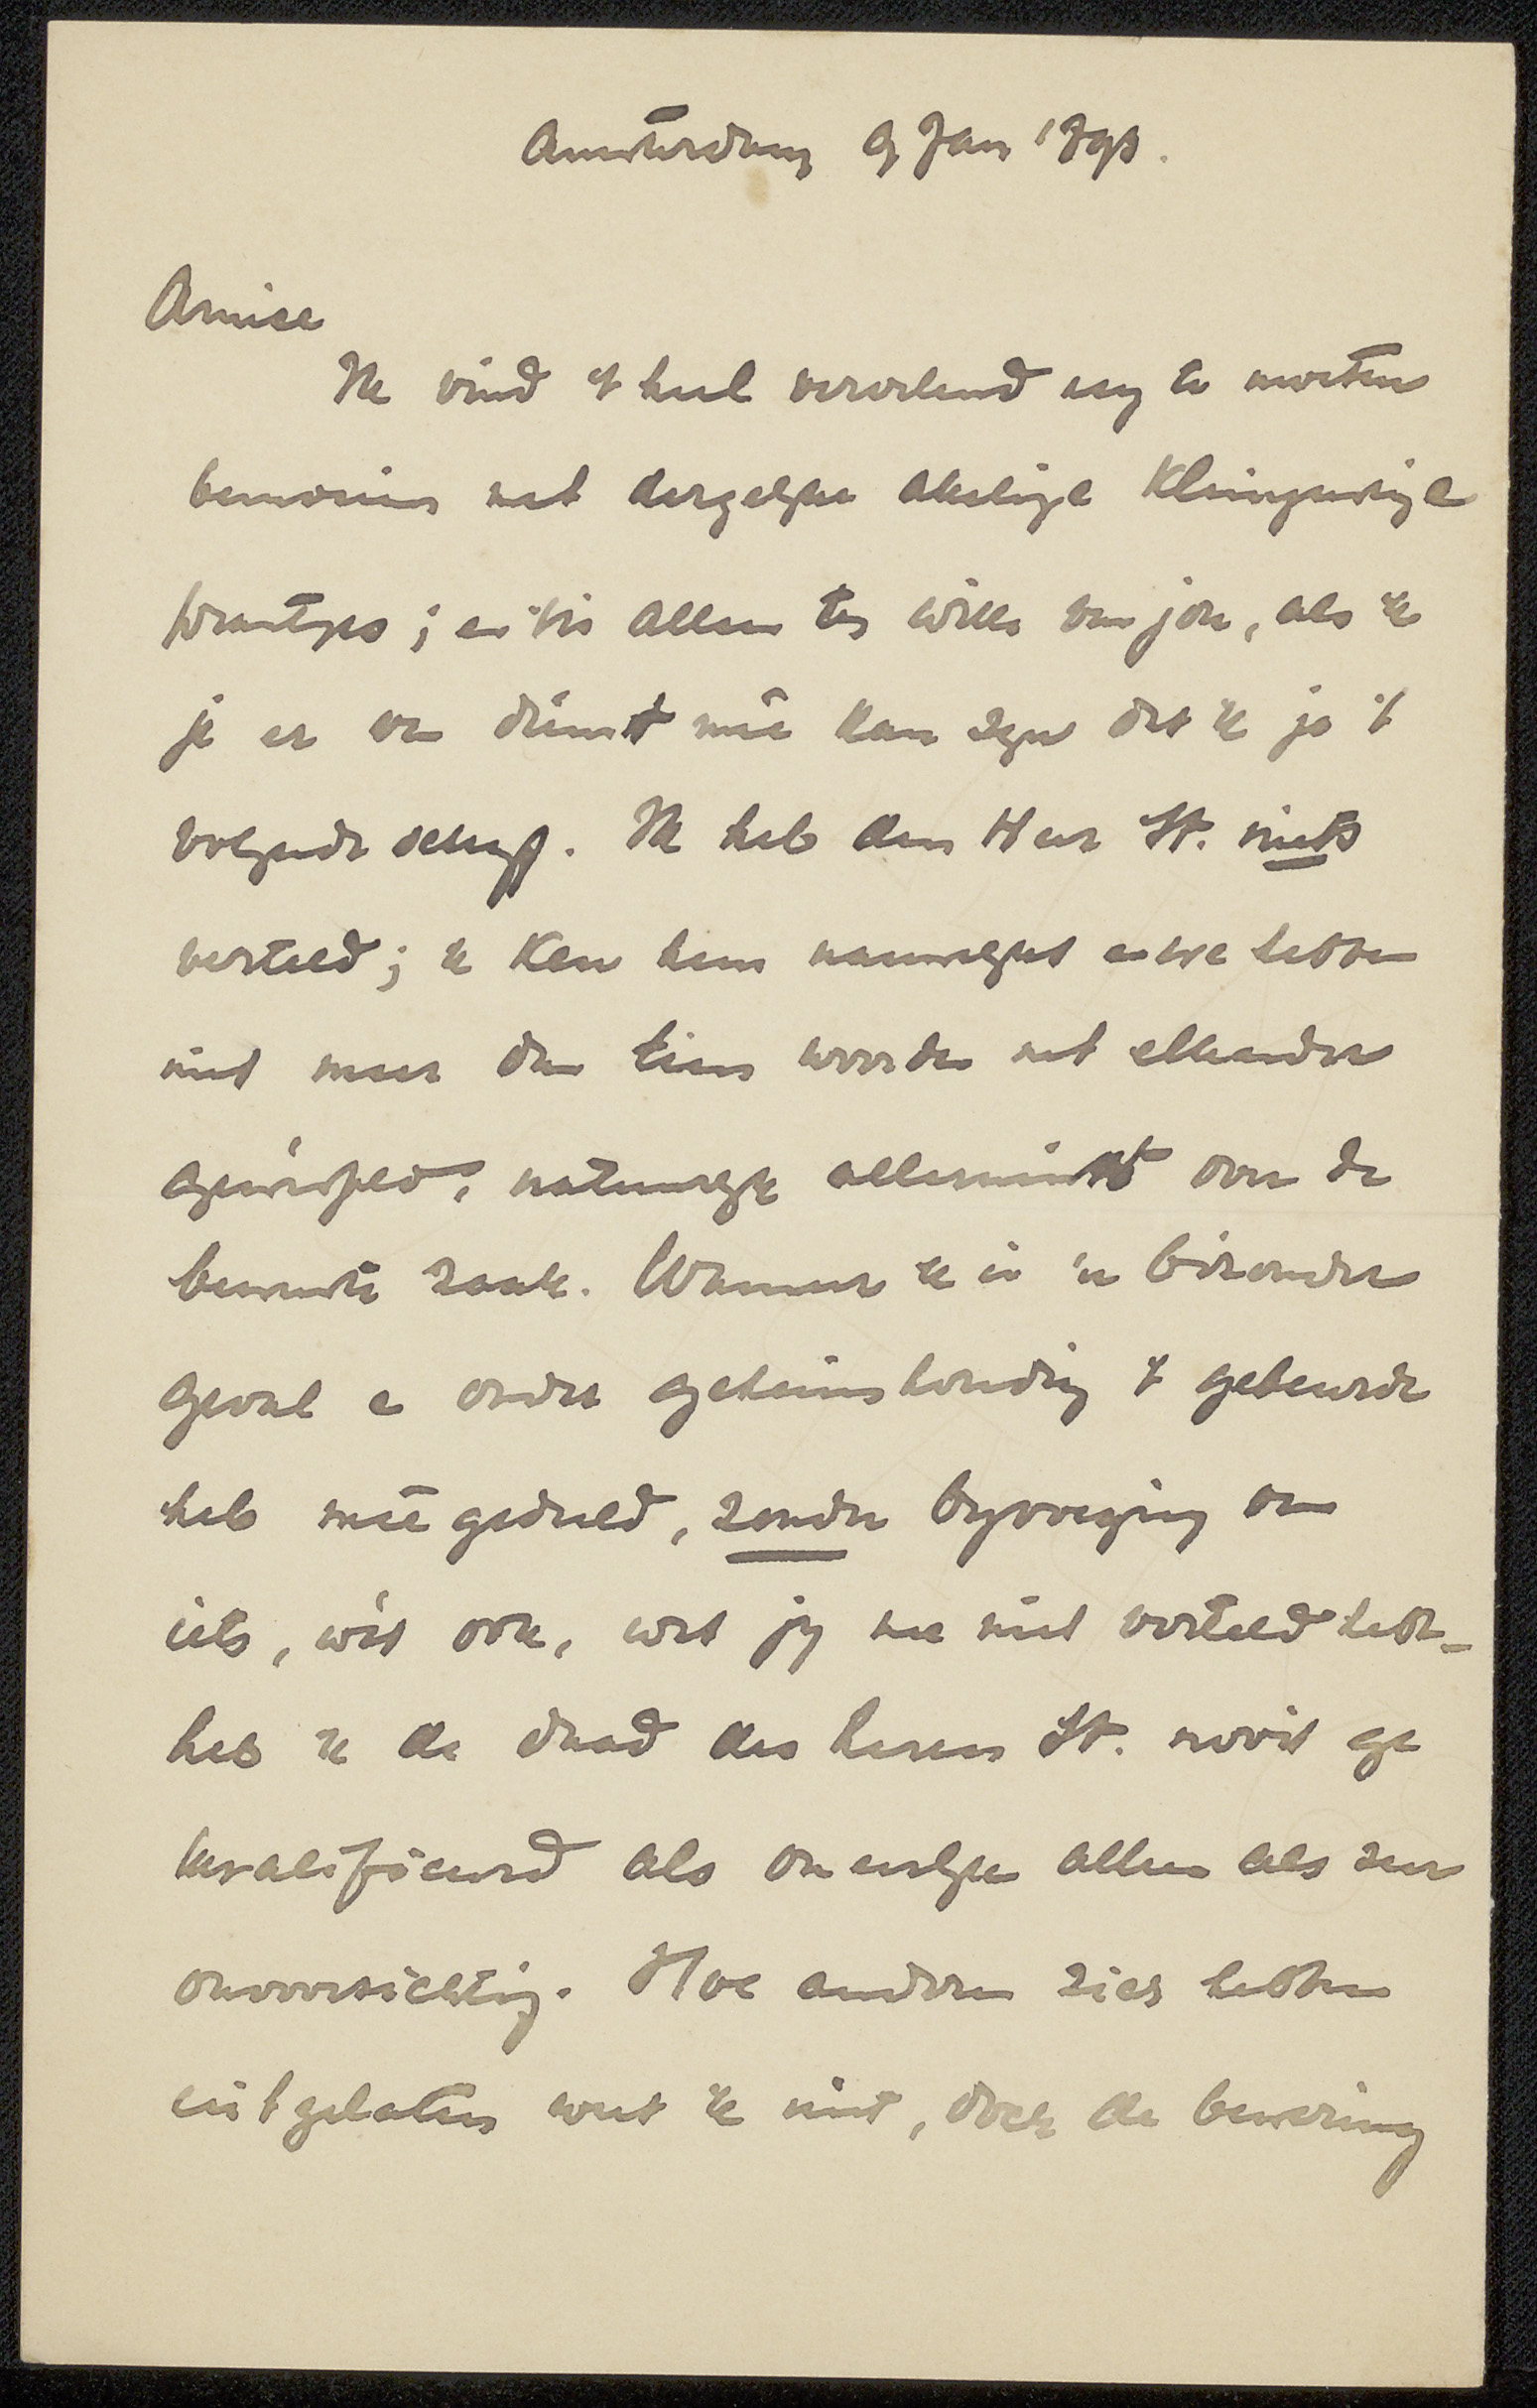 Amsterdam 9 Jan 1898.
Amice
Ik vind 't heel vervelend my te moeten
bemoeien met dergelyke akelige kleingeestige
praatjes; en 't is alleen ter wille van jou, als ik
je er van dienst meê kan zyn dat ik je 't
volgende schryf. Ik heb den Heer St. niets
verteld; ik ken hem nauwelyks en we hebben
niet meer dan tien woorden met elkander
gewisseld, natuurlyk allerminst over de
bewuste zaak. Wanneer ik in 'n bizonder
geval en onder geheimhouding 't gebeurde
heb meêgedeeld, zonder byvoeging van
iets, wát ook, wat jy me niet verteld hebt_
heb ik de daad des heren St. nooit ge
kwalificeerd als oneerlyk alleen als zeer
onvoorzichtig. Hoe anderen zich hebben
uitgelaten weet ik niet, doch de bewering